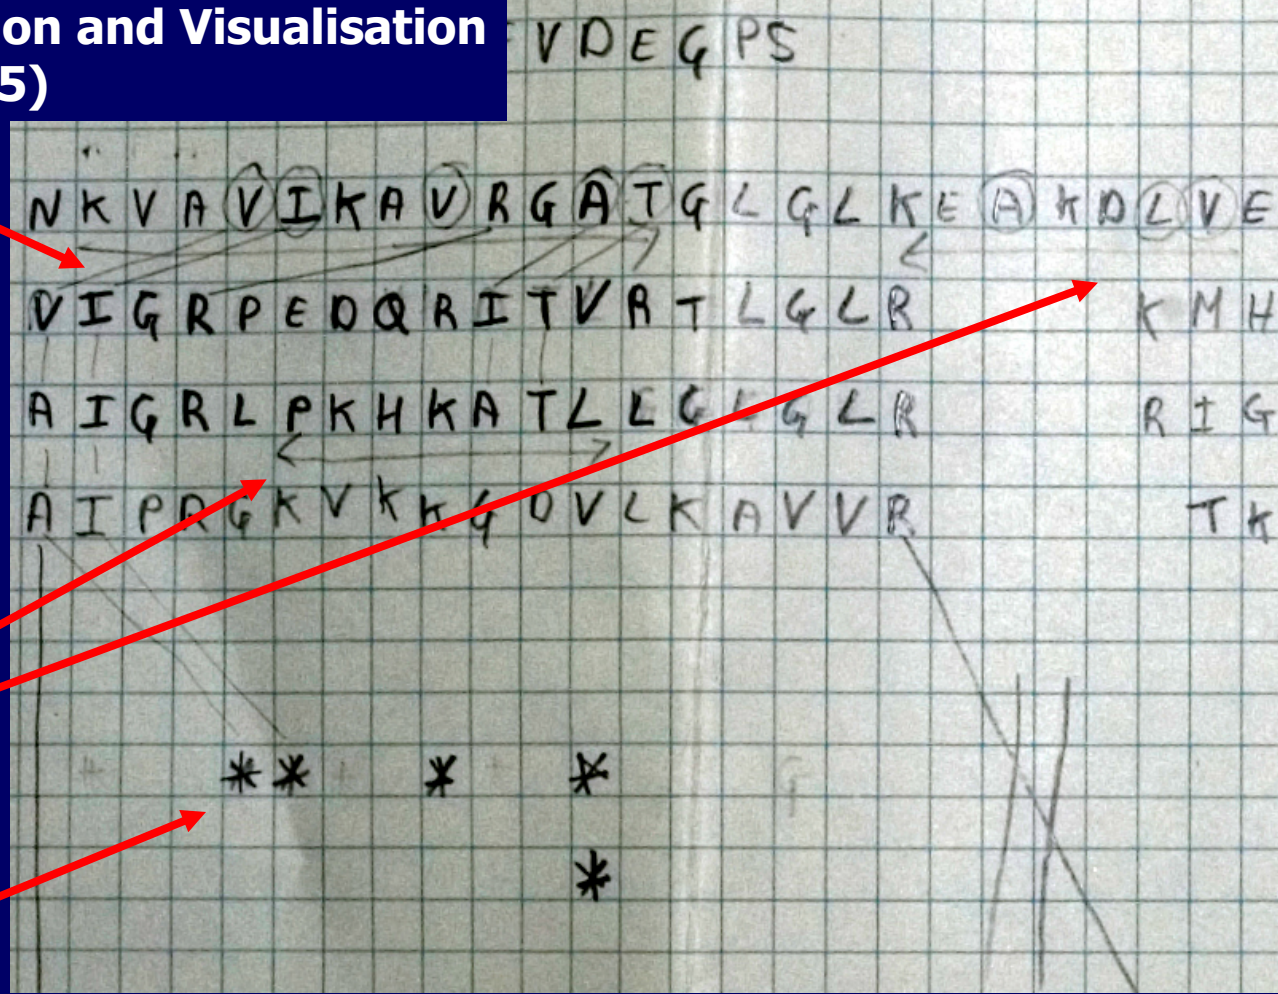 on and Visualisation
5)
V D E G P S
N K V A V I K A V R G A T G L G L K E A K D L V E
V I G R P E D Q R I T V R T L G L R K M H
A I G R L P K H K A T L L G L G L R R I G
A I P R G K V K K G D V L K A V V R T K
* * * *
*